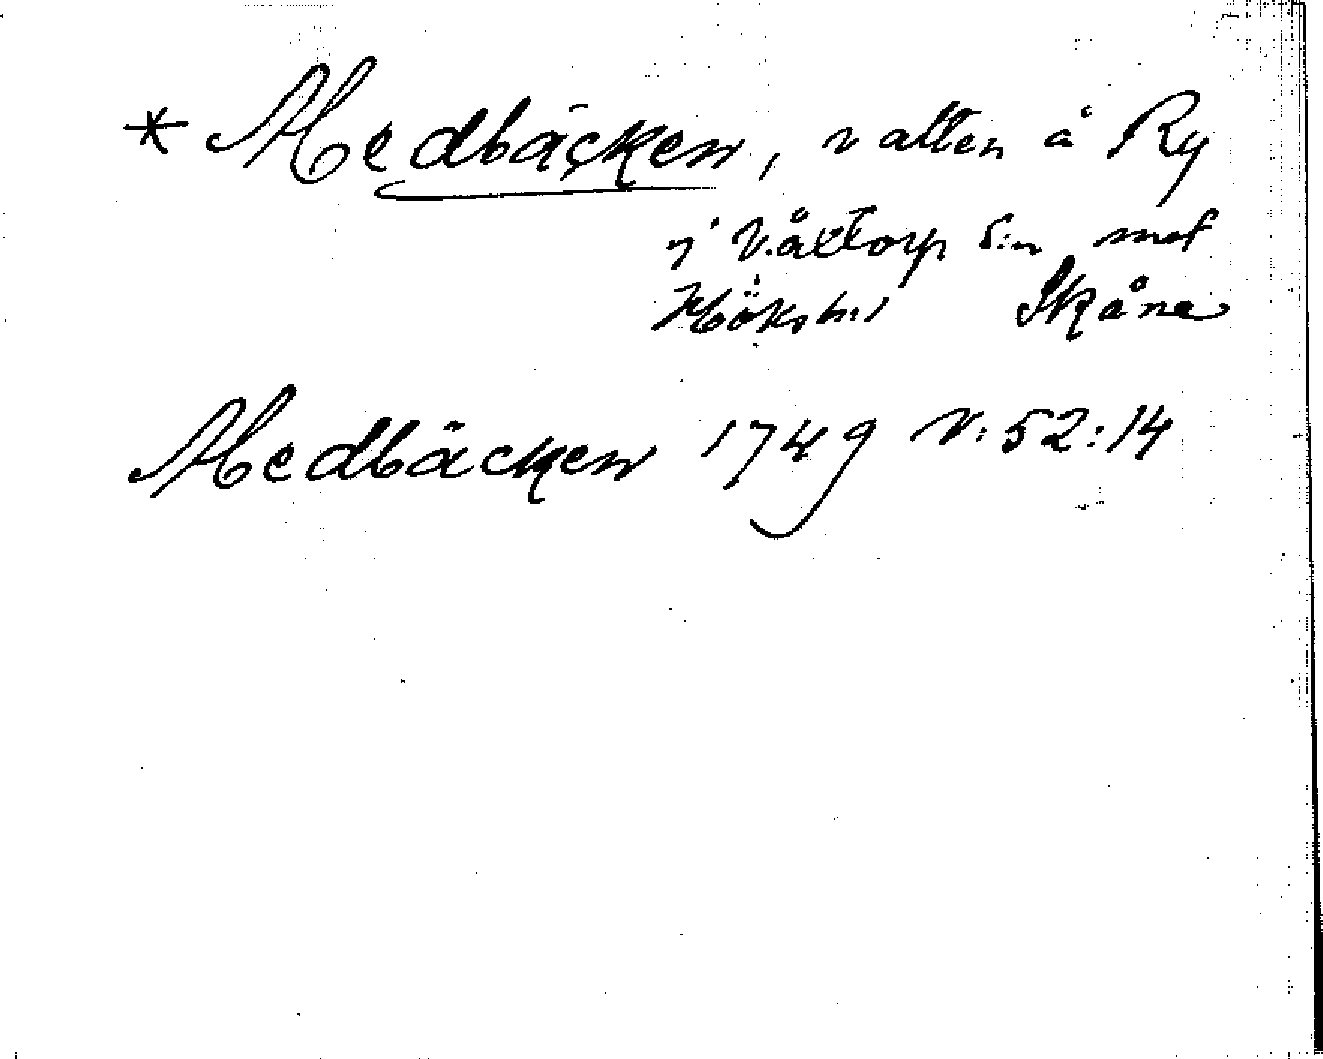 * Medbäcken, vatten å Ry
i Våxtorp s:n
Hökshd Skåne
Medbäcken 1749 V:52:14